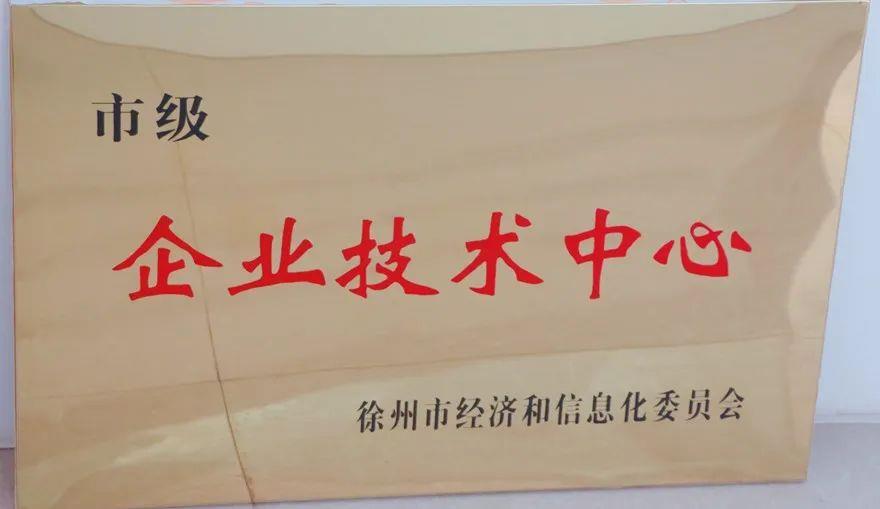 市级
企业技术中心
徐州市经济和信息化委员会